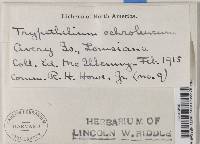 Lichens of North America.
Trypethelium ochroleucum
Avery Is., Louisiana
Coll. Ed. McIlhenny - Feb. 1915
Comm. R. H. Howe, Jr. (no. 9)
HARVARD
HERBARIUM OF
LINCOLN W. RIDDLE